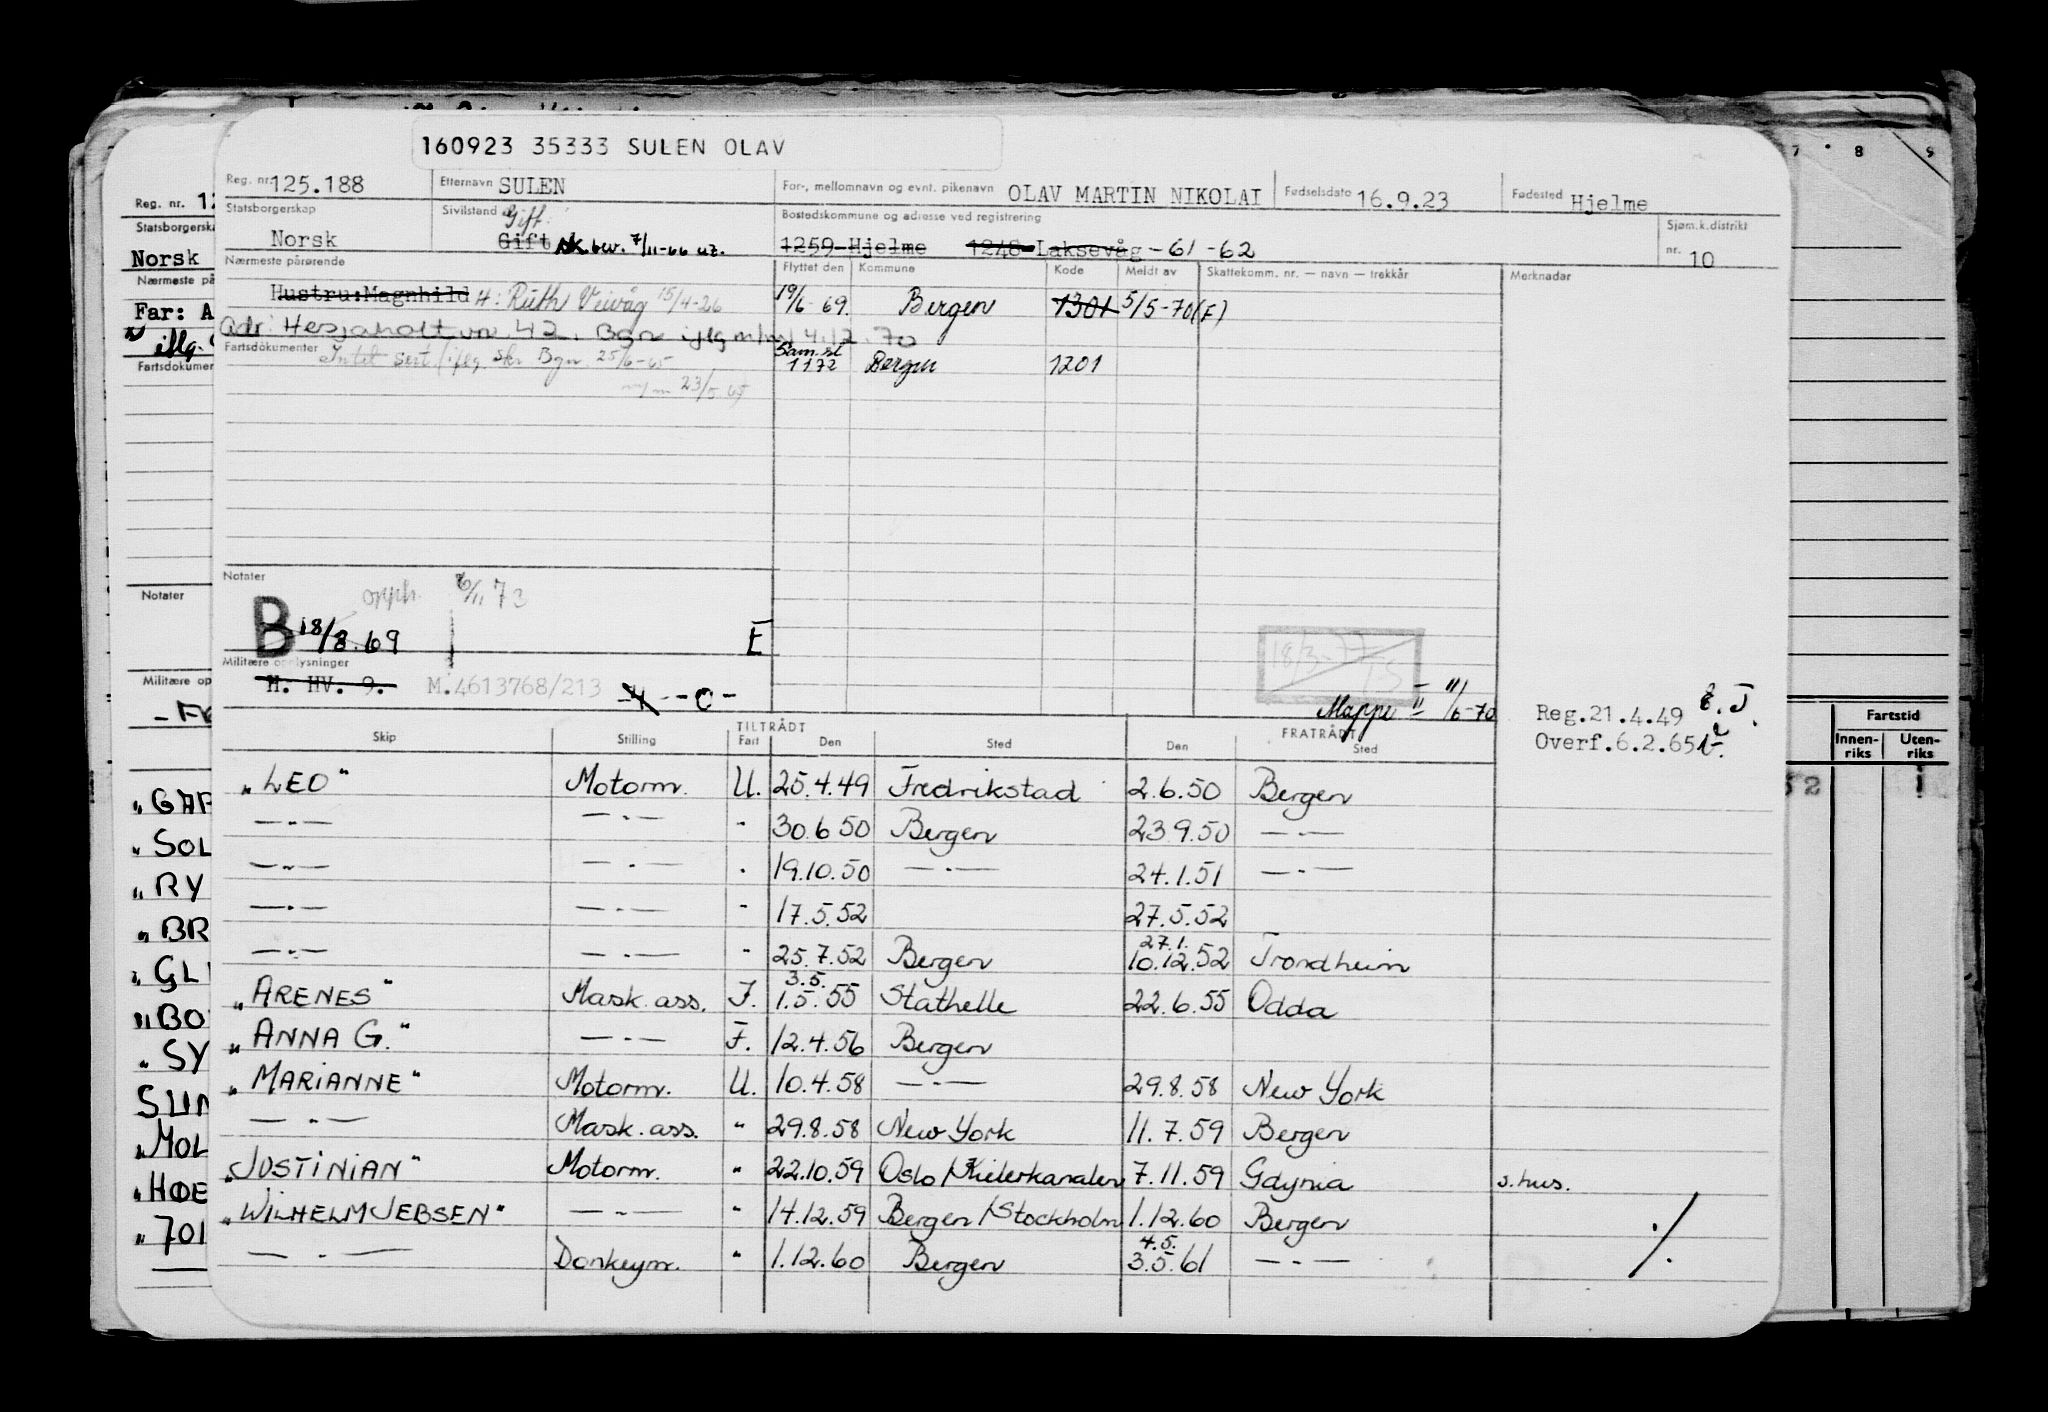 160923 35333 SULEN OLAV
Reg. nr. 125.188 Etternavn SULEN For-, mellomnavn og evnt. pikenavn OLAV MARTIN NIKOLAI Fødselsdato 16.9.23 Fødested Hjelme
Statsborgerskap Norsk Sivilstand Gift Gift bev. 7/11-66 Bostedskommune og adresse ved registrering 1259 Hjelme 1248 Laksevåg -61 -62 Sjøm.k.distrikt nr. 10
Nærmeste pårørende Flyttet den Kommune Kode Meldt av Skattekomm. nr. — navn — trekkår Merknader
Hustru: Magnhild H: Ruth Veivåg 15/4-26 19/6-69. Bergen 1301 5/5-70 (F)
Adr: Hesjaholtvn 42, Bgn iflg m/ 4.12.70
Fartsdokumenter Intet sert iflg. skr Bgn 25/6-65 Sam.sl 1172 Bergen 1201
23/5.65
Notater opph. 6/11 73
B 18/8.69 E
18/3-77
Militære opplysninger
H. HV. 9. M.4613768/213 - -0-
Mappe II 11/6-70 Reg.21.4.49
Overf.6.2.65
TILTRÅDT FRATRÅDT
Skip Stilling Fart Den Sted Den Sted
„LEO“ Motorm. U. 25.4.49 Fredrikstad 2.6.50 Bergen
—„— —„— " 30.6 50 Bergen 23 9.50 —„—
—„— —„— " 19.10.50 —„— 24.1.51 —„—
—„— —„— " 17.5.52 27.5.52
—„— —„— " 25.7.52 Bergen 27.1. 10.12.52 Trondheim
„ARENES“ Mask. ass. I. 3.5. 1.5.55 Stathelle 22.6.55 Odda
„ANNA G.“ —„— F. 12.4.56 Bergen
„MARIANNE“ Motorm. U. 10.4.58 —„— 29.8.58 New York
—„— Mask. ass. " 29.8.58 New York 11.7.59 Bergen
„JUSTINIAN“ Motorm. " 22.10.59 Oslo/Kielerkanalen 7.11.59 Gdynia s.hus.
„WILHELM JEBSEN“ —„— " 14.12.59 Bergen/Stockholm 1.12.60 Bergen
—„— Donkeym. " 1.12.60 Bergen 4.5. 3.5.61 —„—
./.
Reg. nr. 12
Statsborgerska
Norsk
Nærmeste på
Far: A
iflg.
Fartsdokumen
Notater
Militære op
„GAR
„SOL
„RY
„BR
„GL
„BO
„SY
SUN
„MOL
„HØE
„701
7 8 9
Fartstid
Innen-riks Uten-riks
52